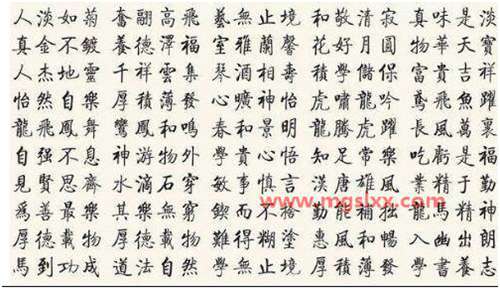 人淡如菊 奮翮高飛 藝無止境 和敬清寂 真味是淡
真金不鍍 養德澤福 室雅蘭馨 花好月圓 物華天寶
人杰地靈 千祥雲集 琴 相壽 學儲 富貴吉祥
怡然自樂 厚積薄發 曠神怡 虎嘯龍吟 鳶飛魚躍
龍飛鳳舞 鸞鳳和鳴 春和景明 龍騰虎躍 長風萬里
自强不息 神游物外 學貴心悟 知足常樂 吃虧是福
見賢思齊 水滴石穿 敏事慎言 漢唐雄風 業精于勤
爲善最樂 其樂無窮 鍥而不捨 勤能補拙 龍馬精神
厚德載物 厚德載物 難得糊塗 惠風和暢 入幽出朗
馬到功成 道法自然 學無止境 厚積薄發 學書養志
www.mgslxx.com